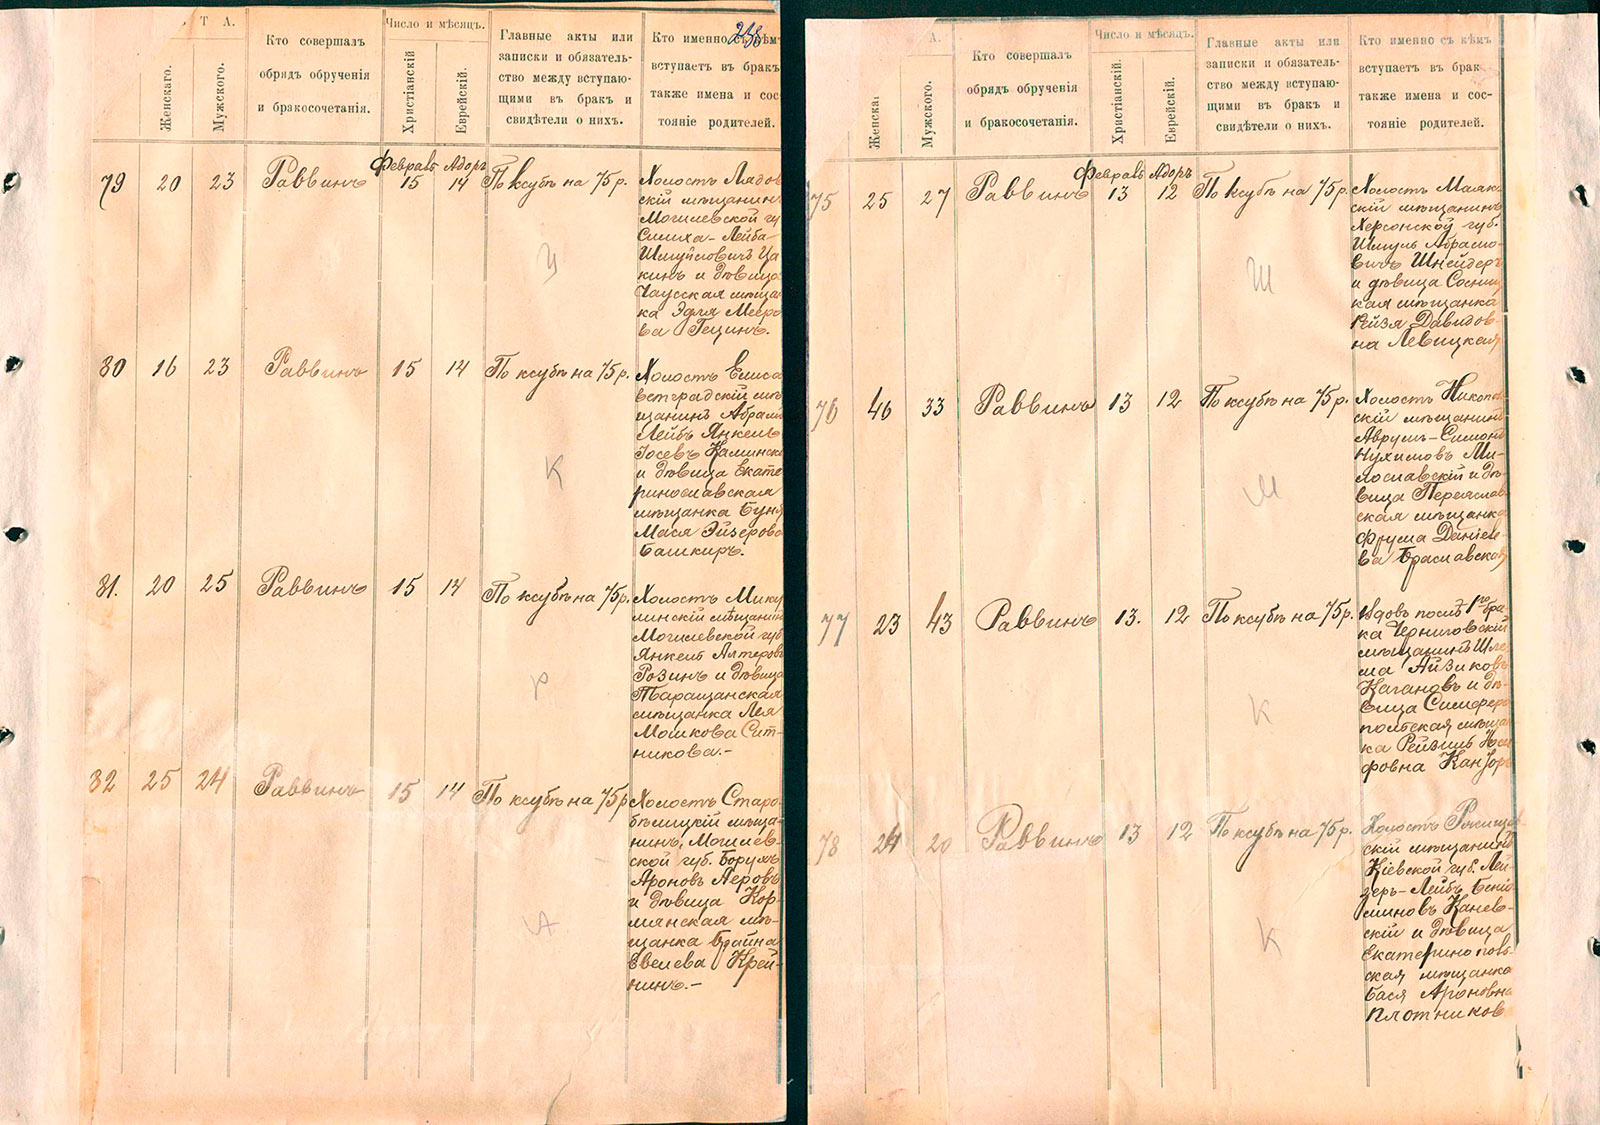 Т А.
Женскаго.
Мужского.
Кто совершалъ
обрядъ обрученія
и бракосочетанія.
Число и мѣсяцъ.
Христіанскій
Еврейскій.
Главные акты или
записки и обязатель-
ство между вступаю-
щими въ бракъ и
свидѣтели о нихъ.
Кто именно съ кѣмъ
вступаетъ въ бракъ
также имена и сос-
тояніе родителей.
79 20 23 Раввинъ Февраль 15 Адоръ 14 По ксубѣ на 75 р.
Холостъ Лядов
скій мѣщанинъ
Могилевской гу
Симха-Лейба
Шмуйловичъ Ца
кинъ и дѣвица
Чаусская мѣща
ка Эдля Мееро
ва Гецинъ.
Ц
80 16 23 Раввинъ 15 14 По ксубѣ на 75 р.
Холостъ Елиса
ветградскій мѣ
щанинъ Абрам
Лейбъ Янкель
Іосевъ Калинск
и дѣвица Екате
ринославская
мѣщанка Буня
Мася Эйзерова
Башкиръ.
К
81. 20 25 Раввинъ 15 14 По ксубѣ на 75 р.
Холостъ Мику
линскій мѣщанин
Могилевской губ
Янкель Алтеровъ
Розинъ и дѣвица
Таращанская
мѣщанка Лея
Мошкова Сит-
никова.-
Р
82 25 24 Раввинъ 15 14 По ксубѣ на 75 р
Холостъ Старо
бѣлицкій мѣща-
нинъ, Могилев-
ской губ. Борухъ
Ароновъ Аеровъ
и дѣвица Кор-
мянская мѣ-
щанка Брайна
Евелева Крей-
нинъ.-
А
А.
Женска
Мужского.
Кто совершалъ
обрядъ обрученія
и бракосочетанія.
Число и мѣсяцъ.
Христіанскій
Еврейскій.
Главные акты или
записки и обязатель-
ство между вступаю-
щими въ бракъ и
свидѣтели о нихъ.
Кто именно съ кѣмъ
вступаетъ въ брак
также имена и сос-
тояніе родителей.
75 25 27 Раввинъ Февраль 13 Адоръ 12 По ксубѣ на 75 р.
Холостъ Маяк
скій мѣщанинъ
Херсонской губ.
Шмуль Абрамо-
вичъ Шнейдеръ
и дѣвица Сосниц
кая мѣщанка
Рейзя Давидов-
на Левицкая
Ш
76 46 33 Раввинъ 13 12 По ксубѣ на 75 р.
Холостъ Никопол
скій мѣщанинъ
Аврумъ-Симонъ
Нухимовъ Ми-
лославскій и дѣ-
вица Переяслав
ская мѣщанка
Фрума Даніеле
ва Браславская
М
77 23 43 Раввинъ 13. 12 По ксубѣ на 75 р.
Вдовъ послѣ 1го бра-
ка Черниговскій
мѣщанинъ Шле
ма Айзиковъ
Кагановъ и дѣ-
вица Симферо
польская мѣщан
ка Рейзиль Иос
фовна Канторъ
К
78 24 20 Раввинъ 13 12 По ксубѣ на 75 р.
Холостъ Ржищев
скій мѣщанинъ
Кіевской губ. Лей-
зеръ-Лейбъ Бенiа
миновъ Канев-
скій и дѣвица
Екатеринополь-
ская мѣщанка
Бася Ароновна
Плотников
К